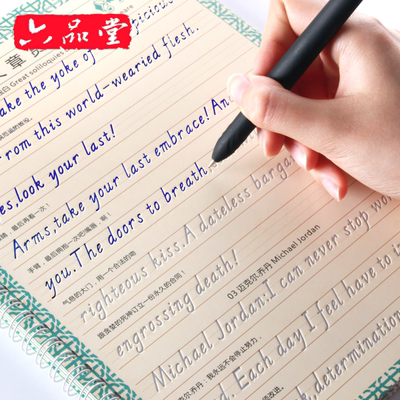 六品堂
Great soliloquies
ake the yoke of
From this world-wearied flesh.
es,look your last!
Arms,take your last embrace! An
手臂,最后拥抱一次吧!嘴唇,啊!
you.The doors to breath,
气息的大门,用一个合法的吻
righteous kiss.A dateless barga
跟贪婪的死神订立一份永久的合同!
engrossing death!
03.迈克尔·乔丹 Michael Jordan
Michael Jordan:I can never stop wo
乔丹:我永远不会停止努力。
d. Each day I feel have to i
k,determination